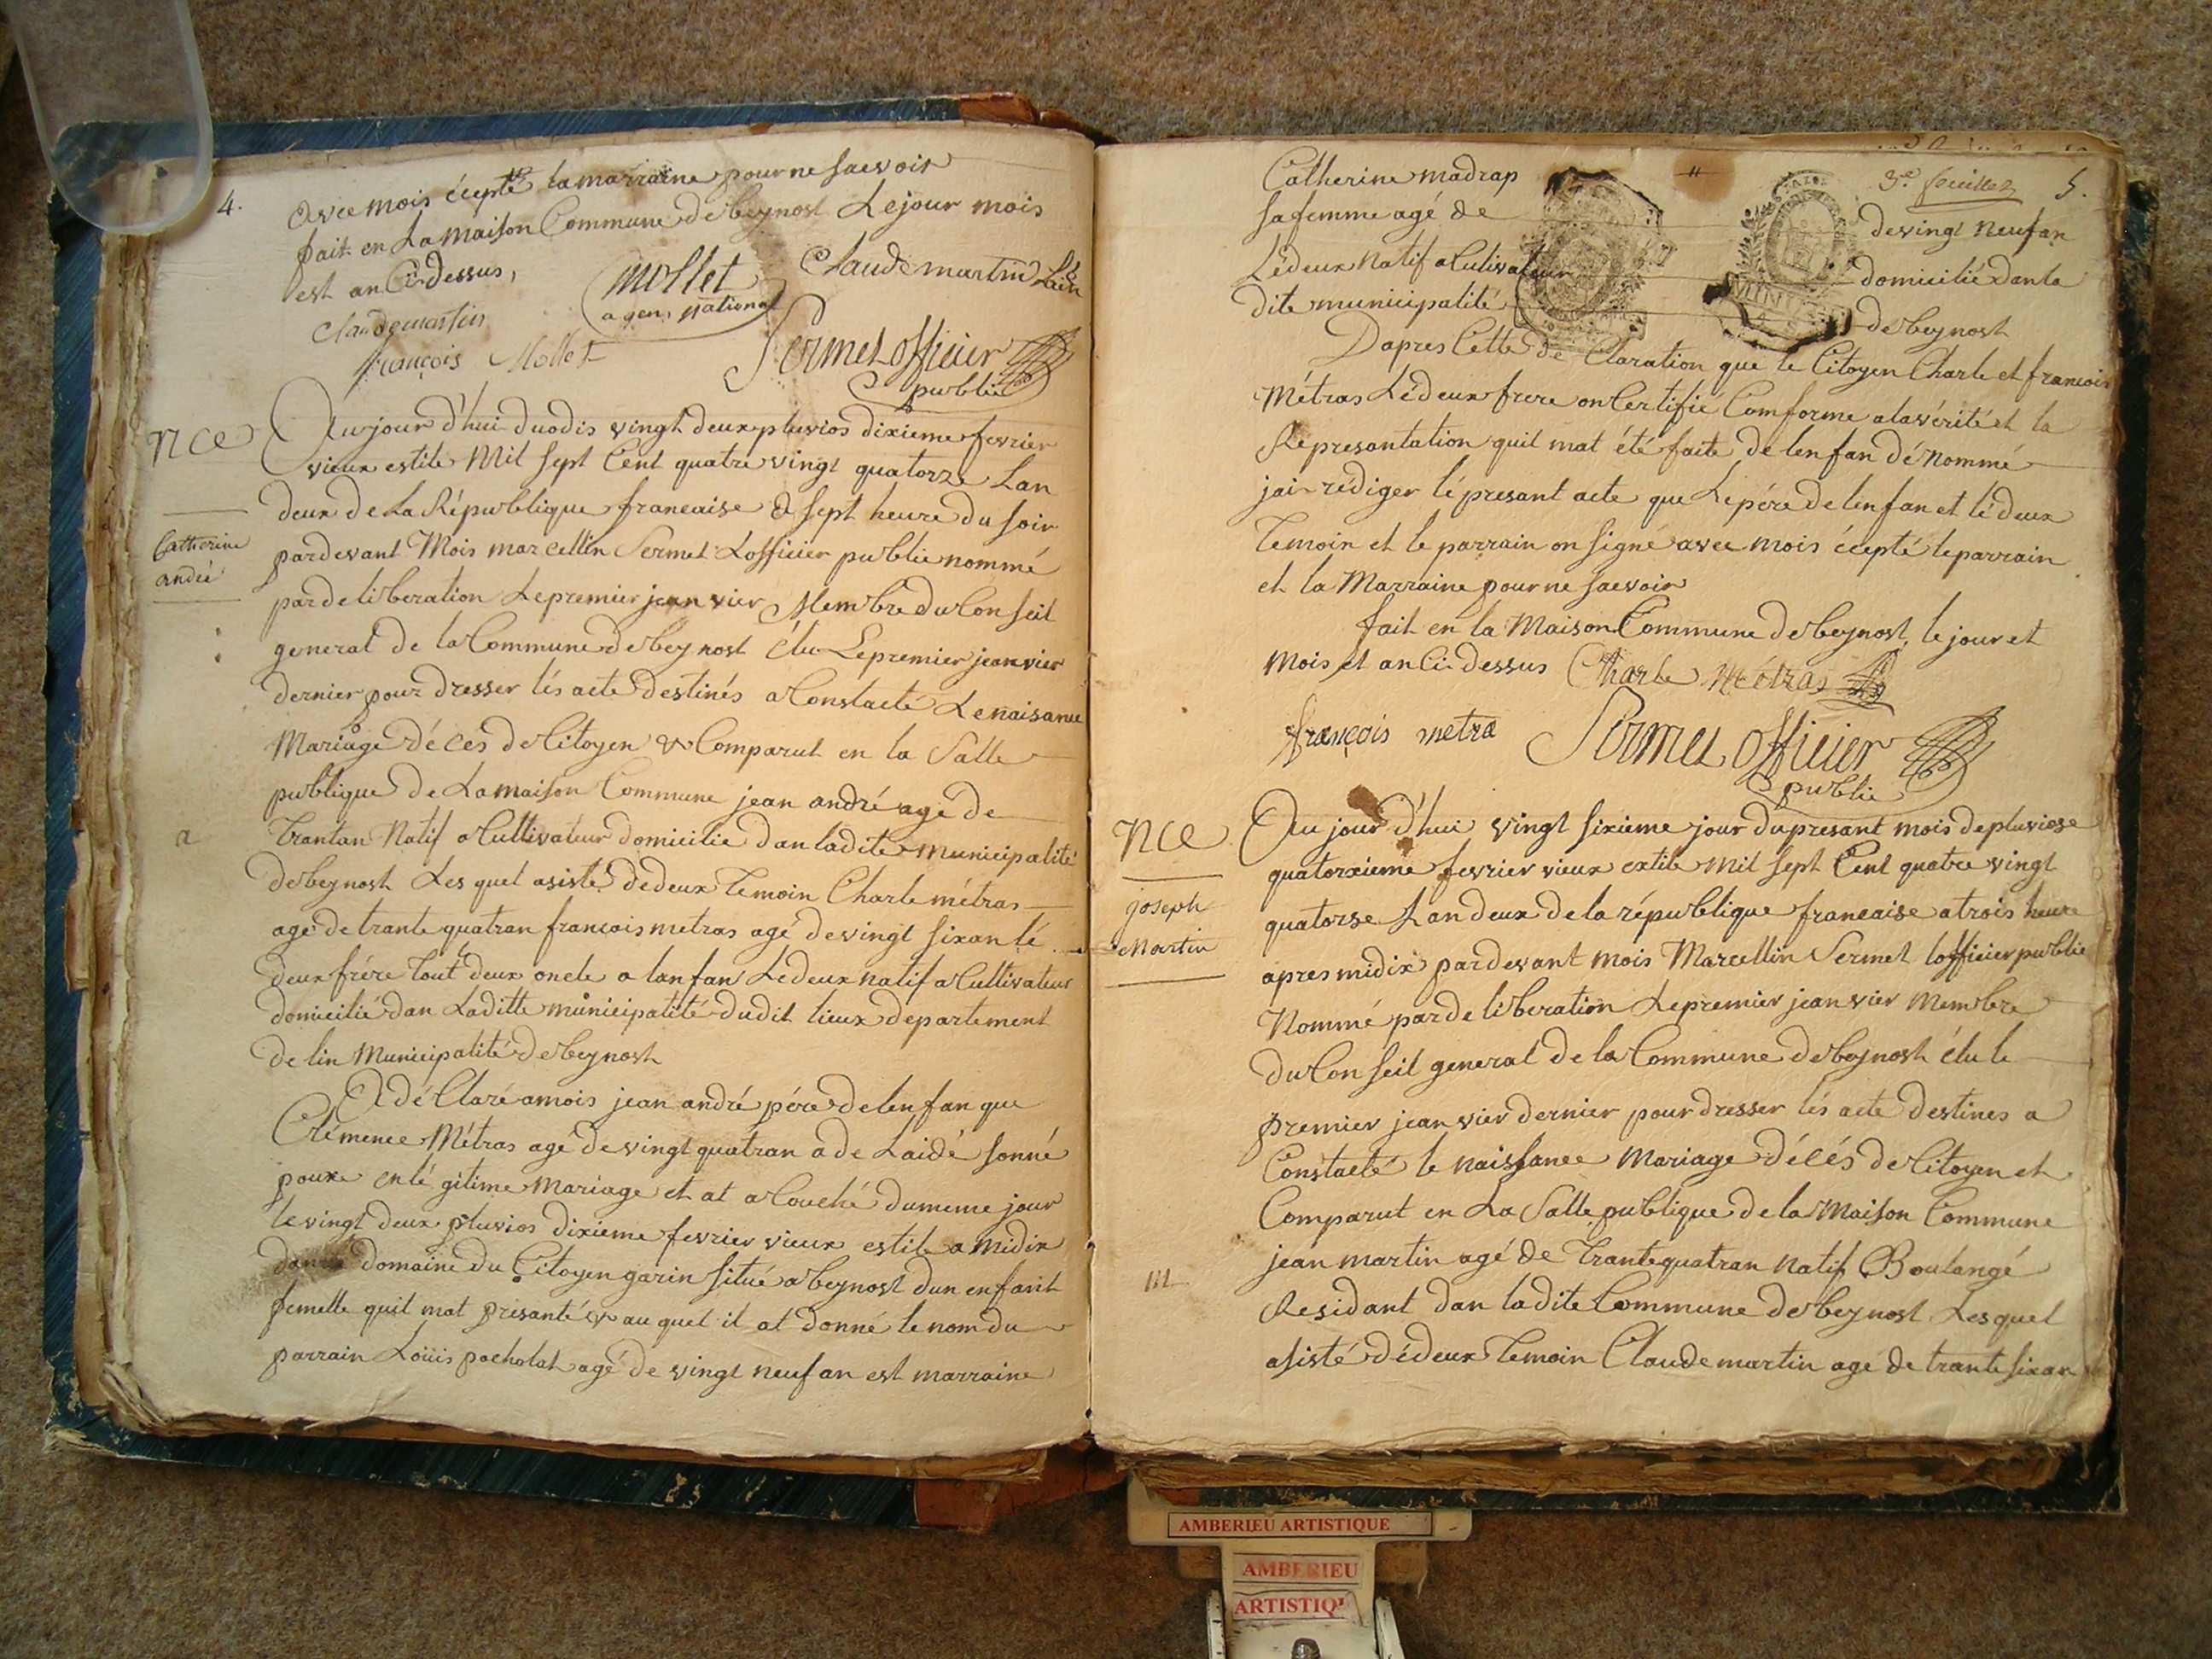 4.
avec mois écepté la marraine pour ne saevoir
fait en La maison Commune de beynost Le jour mois
est an Ci dessus,
mollet
agen, national
Claude martin
Claude martin
françois Mollet
Sermet officier
public
nce
Catherine
andré
Au jour d'hui duodis vingt deux pluvios dixieme fevrier
vieux estile Mil sept Cent quatre vingt quatorze Lan
deux de La République francaise a sept heure du soir
pardevant Mois marcellin Sermet Lofficiér public nommé
par de liberation Le premier jean vier Membre du Con seil
general de la Commune de beynost élu Le premier jeanvier
dernier pour dresser lés acte destinés a Constacté Le naisance
Mariage déces de Citoyen & Comparut en la Salle
publique de La maison Commune jean andré agé de
a
trantan Natif a Cultivateur domicilié dan ladite municipalité
de beynost Les quel asisté dedeux temoin Charle métras
agé de trante quatran francois metras agé de vingt sixan lé
deux frére tout deux oncle a lanfan Le deux natif a Cultivateur
domicilié dan Laditte municipalité dudit lieux departement
de lin Municipalité de beynost
A dé Claré a mois jean andré pére de lenfan que
Clémence Métras agé de vingt quatran a de Laidé sonné
pouxe en lé gitime mariage et at a Couché du meme jour
le vingt deux pluvios dixieme fevrier vieux estile a midix
domaine du Citoyen garin situé a beynost dun enfant
femelle quil mat présanté & au quel il at donné le nom du
parrain Loüis pachalat agé de vingt neuf an est marraine
3e feuillet 5.
Catherine madrap
sa femme agé de de vingt neuf an
Lédeux Natif a Culivateur domicilié dan la
dite municipalité de beynost
D'apres Cette dé Claration que le Citoyen Charle et francois
Métras Lé deux frere on Certifié Comforme a la vérité et la
Représantation quil mat été faite de lenfan dé nommé
jai rédiger lé présant acte que Le pére de lenfan et lé deux
temoin et le parrain on signé avec mois écepté le parrain
et la Marraine pour ne saevoir
fait en la Maison Commune de beynost, le jour et
mois et an Ci dessus Charle Métras
françois metra
Sermet officier
public
nce
joseph
Martin
Au jour d'hui vingt sixieme jour du presant mois de pluviose
quatorxieme fevrier vieux extile mil sept Cent quatre vingt
quatorse Lan deux de la république francaise a trois heure
apres midix pardevant mois Marcellin Sermet lofficier public
Nommé par de liberation Le premier jean vier Membre
du Con seil general de la Commune de beynost élu le
premier jean vier dernier pour dresser lés acte destines a
Constacté le naissance Mariage décés de Citoyen et
Comparut en La Salle publique de la Maison Commune
jean martin agé de trante quatran natif Boulangé
Residant dan la dite Commune de beynost Les quel
asisté dé deux temoin Claude martin agé de trante sixan
AMBERIEU ARTISTIQUE
AMBERIEU
ARTISTIQ